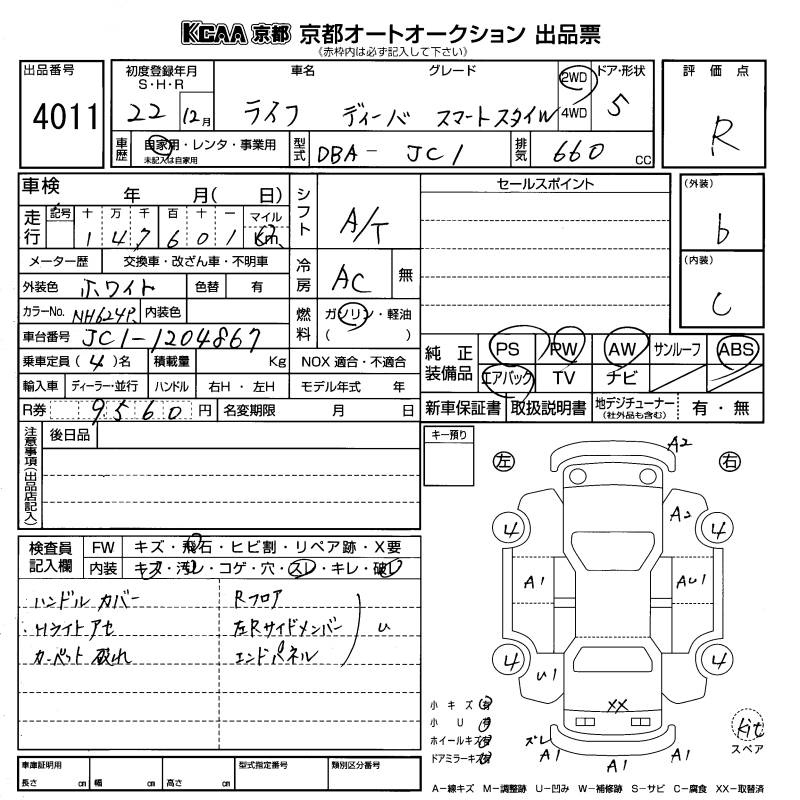 KCAA 京都 京都オートオークション 出品票
(赤枠内は必ず記入して下さい)
出品番号
4011
初度登録年月
S・H・R
22 12月
車名 グレード
ライフ ディーバ スマートスタイル
2WD
4WD
ドア・形状
5
評価点
R
車歴
自家用・レンタ・事業用
未記入は自家用
型式
DBA- JC1
排気
660 CC
車検 年 月( 日)
走行
記号 十 万 千 百 十 一 マイル
1 4 7 6 0 1 Km
メーター歴 交換車・改ざん車・不明車
外装色 ホワイト 色替 有
カラーNo. NH624P 内装色
車台番号 JC1-1204867
乗車定員 (4)名 積載量 Kg
輸入車 ディーラー・並行 ハンドル 右H・左H
R券 9560円 名変期限 月 日
シフト
A/T
冷房
AC 無
燃料
ガソリン・軽油
( )
NOX 適合・不適合
モデル年式 年
セールスポイント
(外装)
b
(内装)
C
純正装備品
PS PW AW サンルーフ ABS
エアバック TV ナビ
新車保証書 取扱説明書 地デジチューナー(社外品も含む) 有・無
注意事項(出品店記入)
後日品
キー預り
検査員記入欄
FW キズ・飛石・ヒビ割・リペア跡・X要
内装 キズ・汚レ・コゲ・穴・スレ・キレ・破レ
ハンドル カバー
Hライト アセ
カーペット 破れ
Rフロア
左Rサイドメンバー
エンドパネル
U
左 右
A2
A2
4 4
A1 AU1
4 4
U1
XX
小キズ 有
小U 有
ホイールキズ 有
ドアミラーキズ 有
ズレ
A1 A1 A1
kit
スペア
車庫証明用
長さ cm 幅 cm 高さ cm
型式指定番号
類別区分番号
A-線キズ M-調整跡 U-凹み W-補修跡 S-サビ C-腐食 XX-取替済